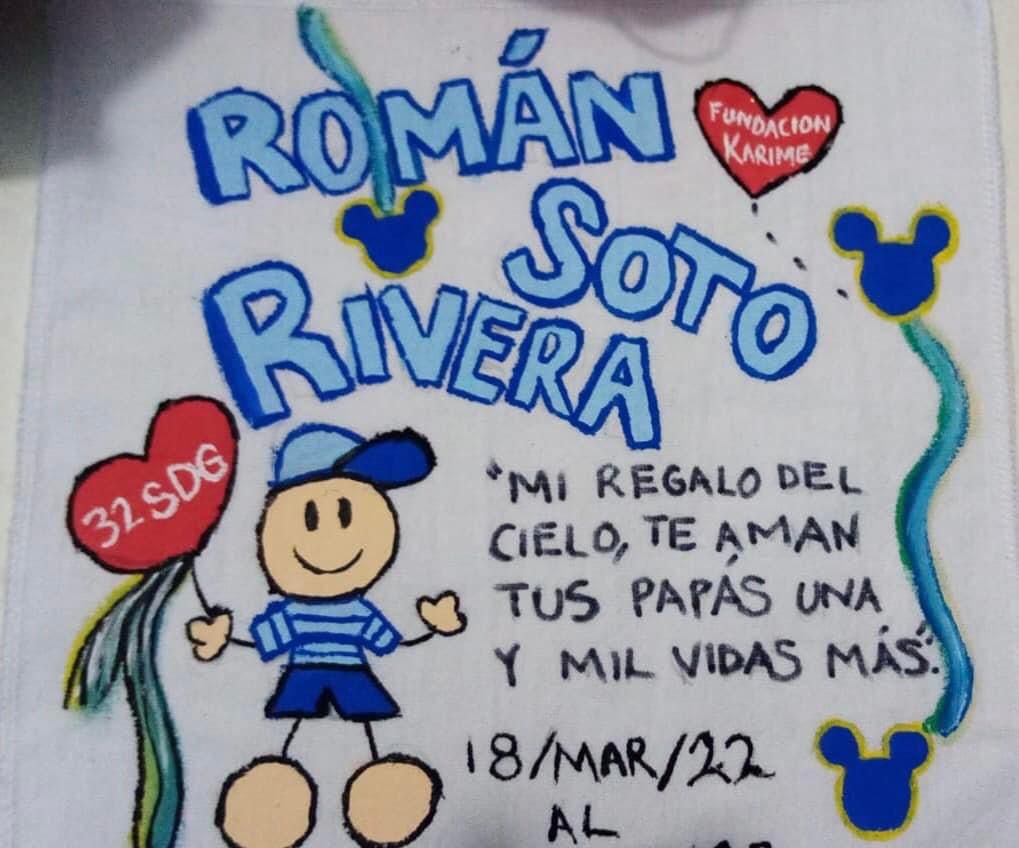 ROMÁN
FUNDACION
KARIME
SOTO
RIVERA
32 SDG
"MI REGALO DEL
CIELO, TE AMAN
TUS PAPÁS UNA
Y MIL VIDAS MÁS".
18/MAR/22
AL